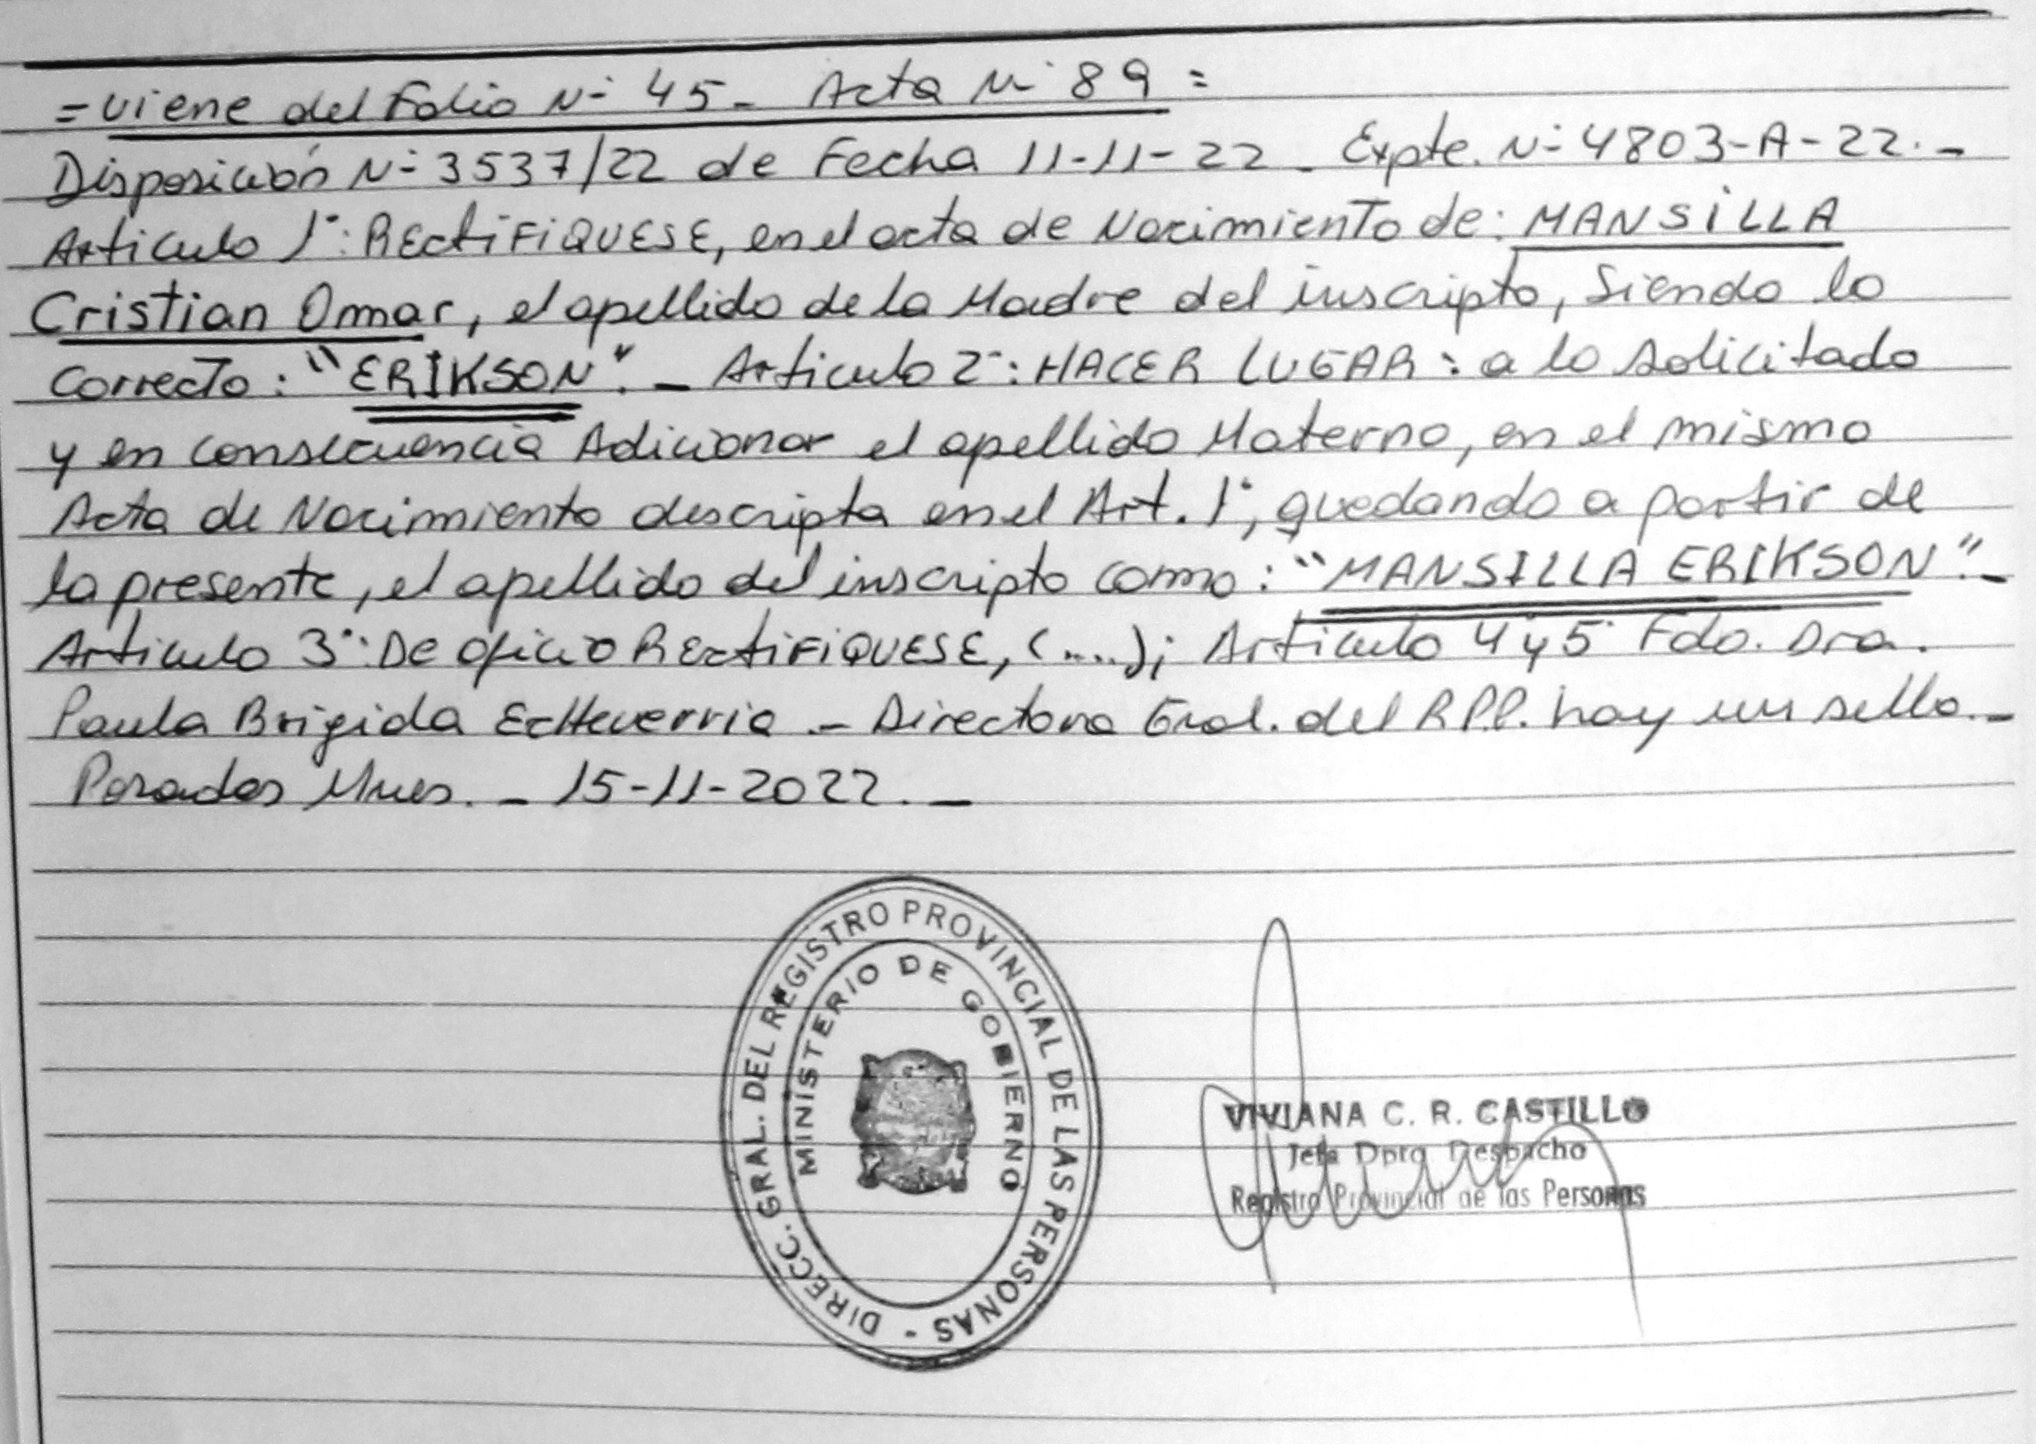 = viene del Folio N- 45 - Acta N- 89 =
Disposición N- 3537/22 de Fecha 11-11-22 - Expte. N- 4803-A-22.-
Articulo 1°: RECTiFiQUESE, en el acta de Nacimiento de: MANSiLLA
Cristian Omar, el apellido de la Madre del inscripto, Siendo lo
correcto: "ERIKSON". - Articulo 2°: HACER LUGAR: a lo solicitado
y en consecuencia Adicionar el apellido Materno, en el mismo
Acta de Nacimiento descripta en el Art. 1°, quedando a partir de
la presente, el apellido del inscripto como: "MANSILLA ERIKSON".-
Articulo 3°: De oficio RECTiFiQUESE, (....); Articulo 4 y 5 Fdo. Dra.
Paula Brigida Echeverria - Directora Gral. del R.P.P. hay un sello.-
Posadas Mnes. - 15-11-2022. -
DIRECC. GRAL. DEL REGISTRO PROVINCIAL DE LAS PERSONAS -
MINISTERIO DE GOBIERNO
VIVIANA C. R. CASTILLO
Jefa Dpto Despacho
Registro Provincial de las Personas